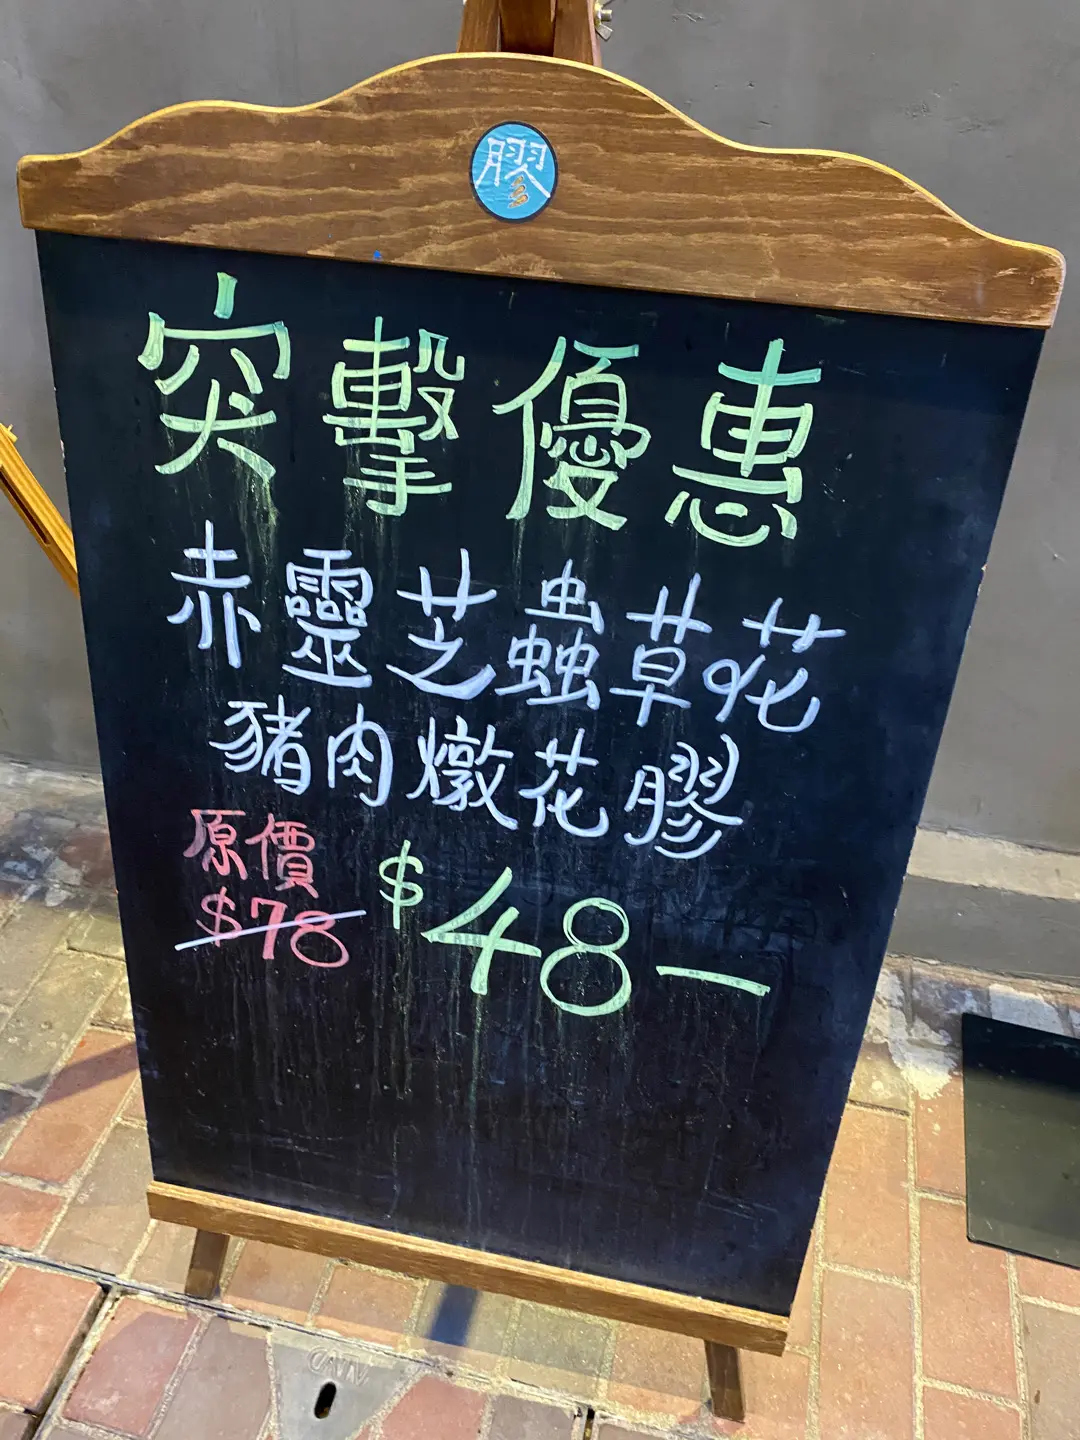 膠
突擊優惠
赤靈芝蟲草花
豬肉燉花膠
原價
$78
$48—